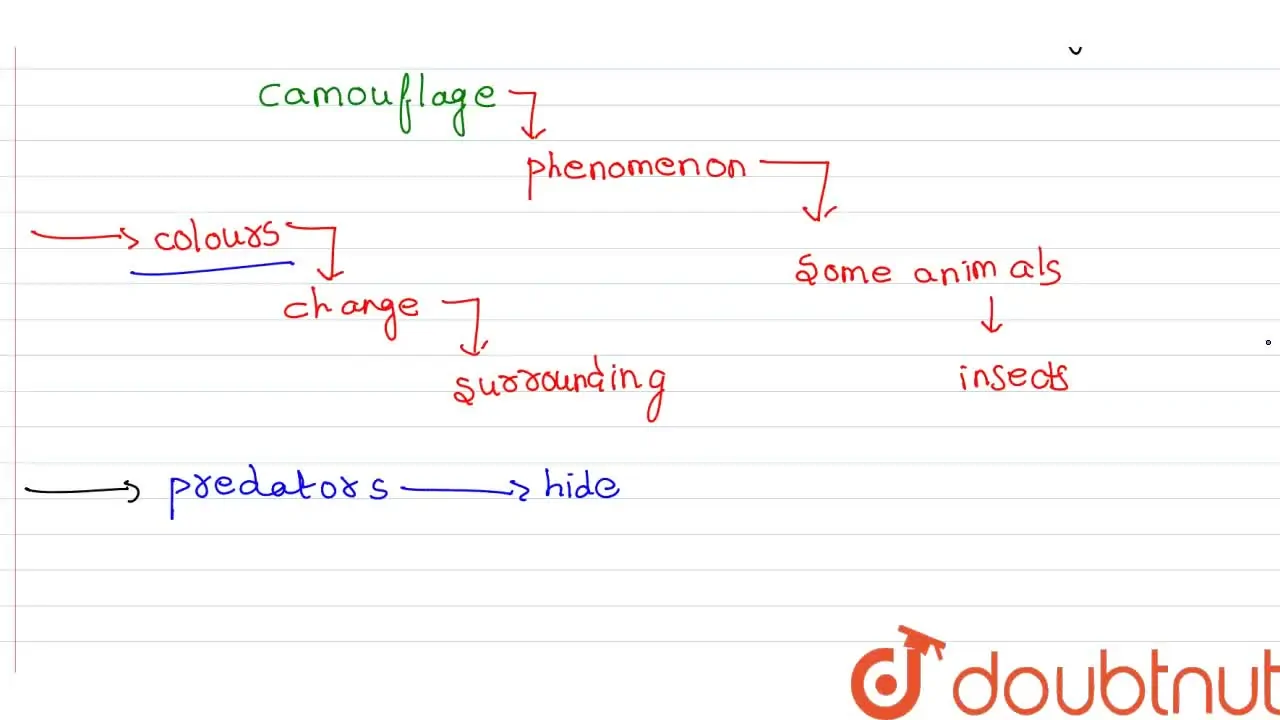 camouflage
phenomenon
colours
some animals
change
surrounding
insects
predators hide
doubtnut